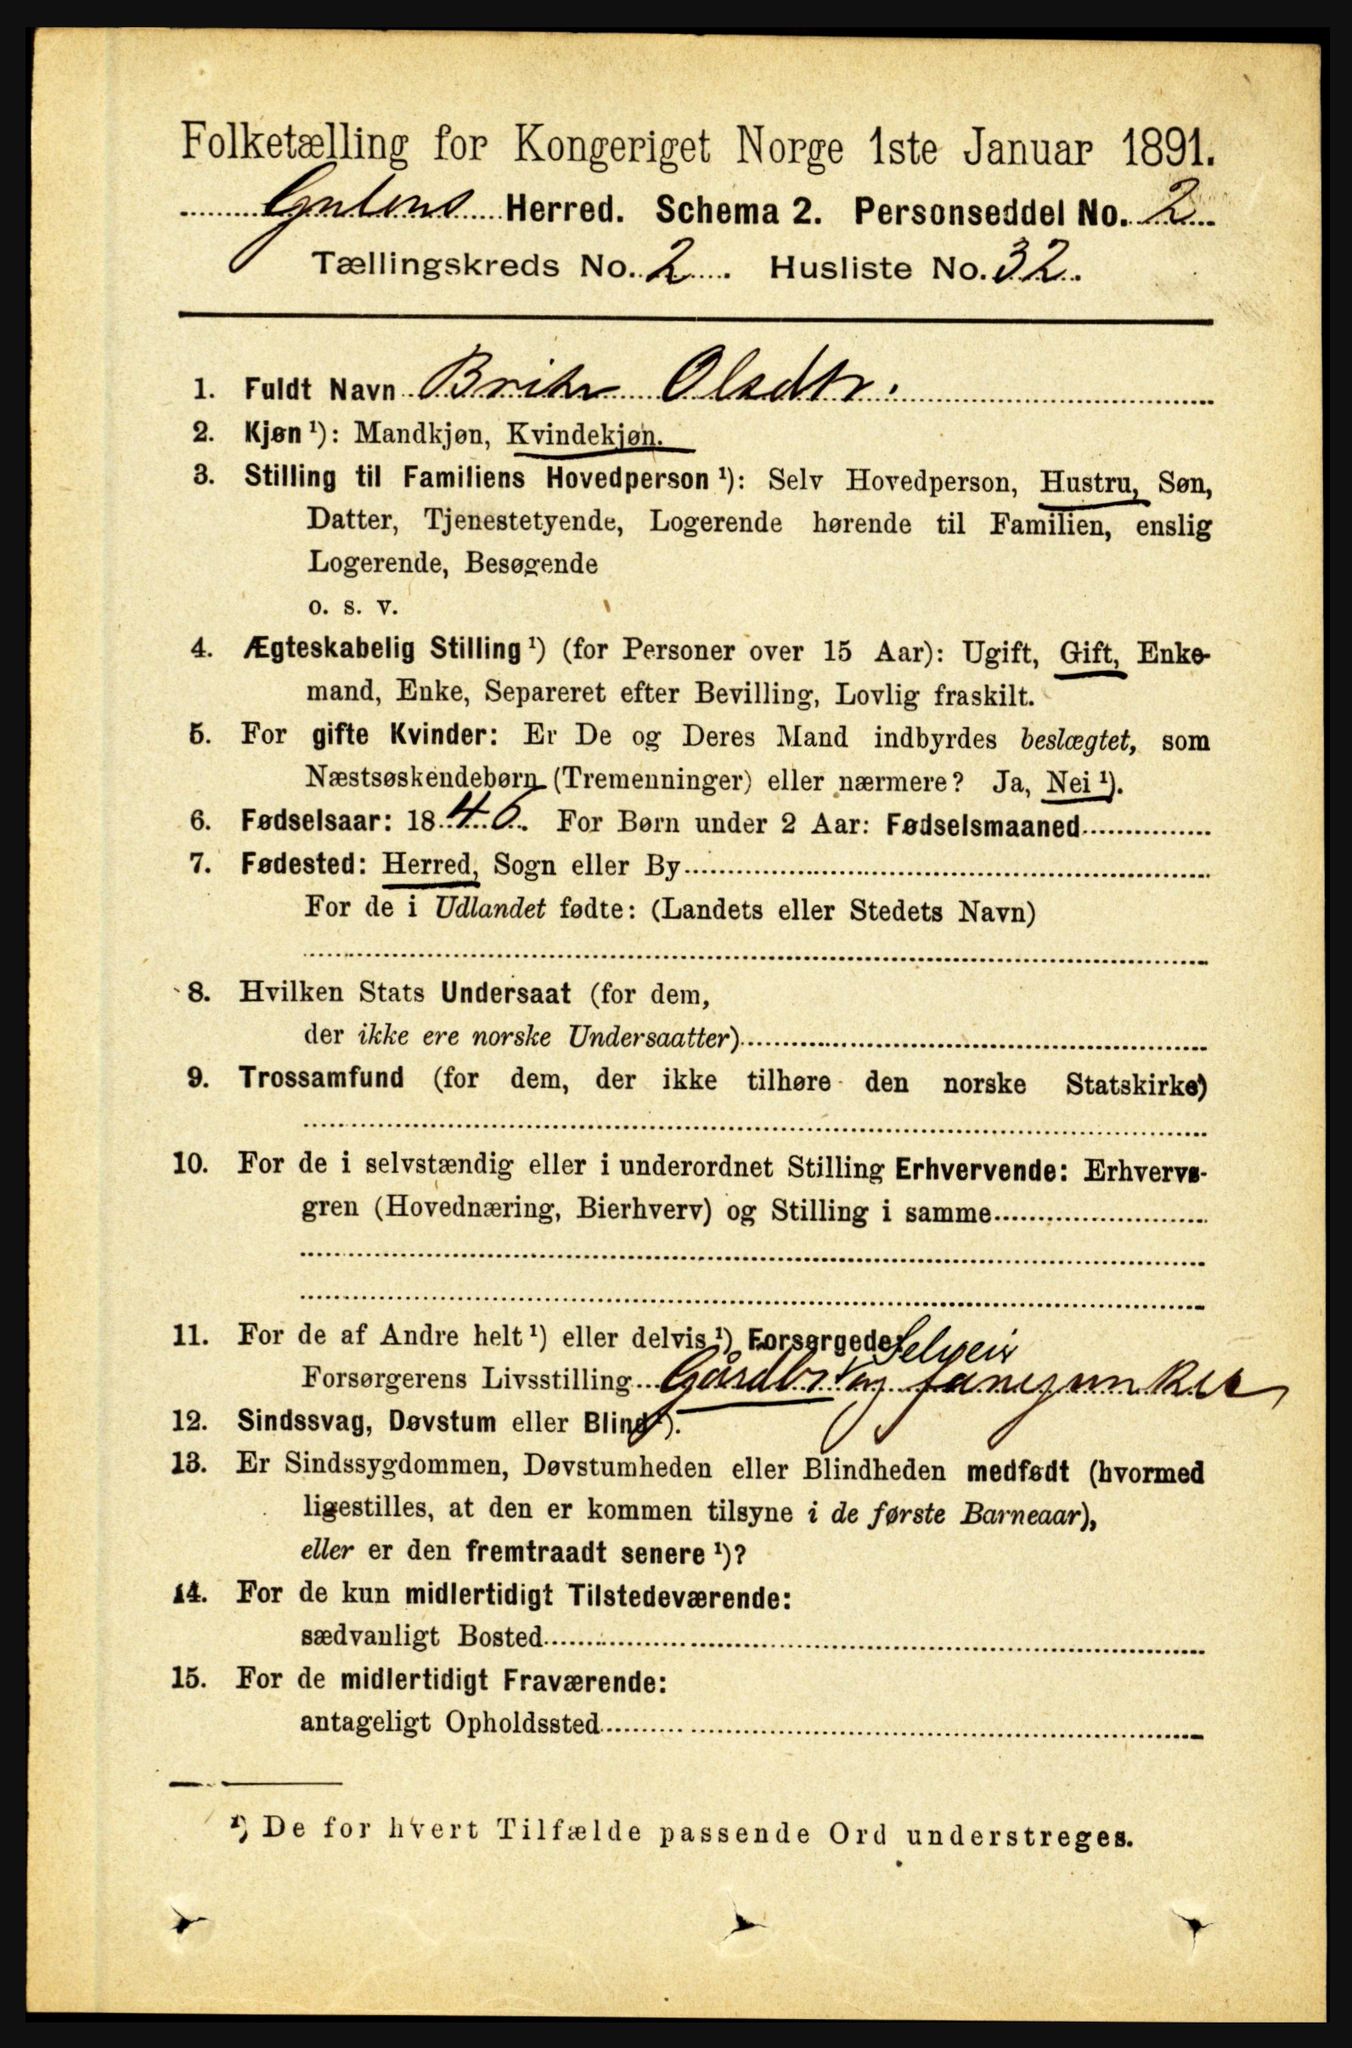 Folketælling for Kongeriget Norge 1ste Januar 1891.
Gulens Herred. Schema 2. Personseddel No. 2
Tællingskreds No. 2. Husliste No. 32.
1. Fuldt Navn Brithe Olsdtr.
2. Kjøn ¹): Mandkjøn, Kvindekjøn.
3. Stilling til Familiens Hovedperson ¹): Selv Hovedperson, Hustru, Søn,
Datter, Tjenestetyende, Logerende hørende til Familien, enslig
Logerende, Besøgende
o. s. v.
4. Ægteskabelig Stilling ¹) (for Personer over 15 Aar): Ugift, Gift, Enke-
mand, Enke, Separeret efter Bevilling, Lovlig fraskilt.
5. For gifte Kvinder: Er De og Deres Mand indbyrdes beslægtet, som
Næstsøskendebørn (Tremenninger) eller nærmere? Ja, Nei ¹).
6. Fødselsaar: 1846. For Børn under 2 Aar: Fødselsmaaned
7. Fødested: Herred, Sogn eller By
For de i Udlandet fødte: (Landets eller Stedets Navn)
8. Hvilken Stats Undersaat (for dem,
der ikke ere norske Undersaatter)
9. Trossamfund (for dem, der ikke tilhøre den norske Statskirke)
10. For de i selvstændig eller i underordnet Stilling Erhvervende: Erhvervs-
gren (Hovednæring, Bierhverv) og Stilling i samme
11. For de af Andre helt ¹) eller delvis ¹) Forsørgede: Selveir
Forsørgerens Livsstilling Gårdbr og
12. Sindssvag, Døvstum eller Blind ¹).
13. Er Sindssygdommen, Døvstumheden eller Blindheden medfødt (hvormed
ligestilles, at den er kommen tilsyne i de første Barneaar),
eller er den fremtraadt senere ¹)?
14. For de kun midlertidigt Tilstedeværende:
sædvanligt Bosted
15. For de midlertidigt Fraværende:
antageligt Opholdssted
¹) De for hvert Tilfælde passende Ord understreges.